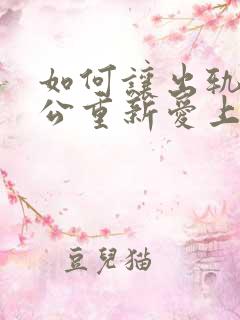 如何讓出軌
公重新愛上
豆兒貓